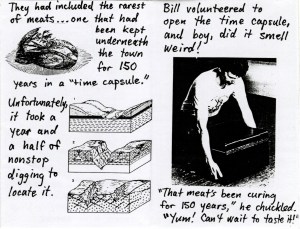 They had included the rarest
of meats...one that had
been kept
underneath
the town
for 150
years in a "time capsule."
Unfortunately,
it took a
year and
a half of
nonstop
digging to
locate it.
1
2
3
Bill volunteered to
open the time capsule,
and boy, did it smell
weird!
"That meat's been curing
for 150 years," he chuckled.
"Yum! Can't wait to taste it!"